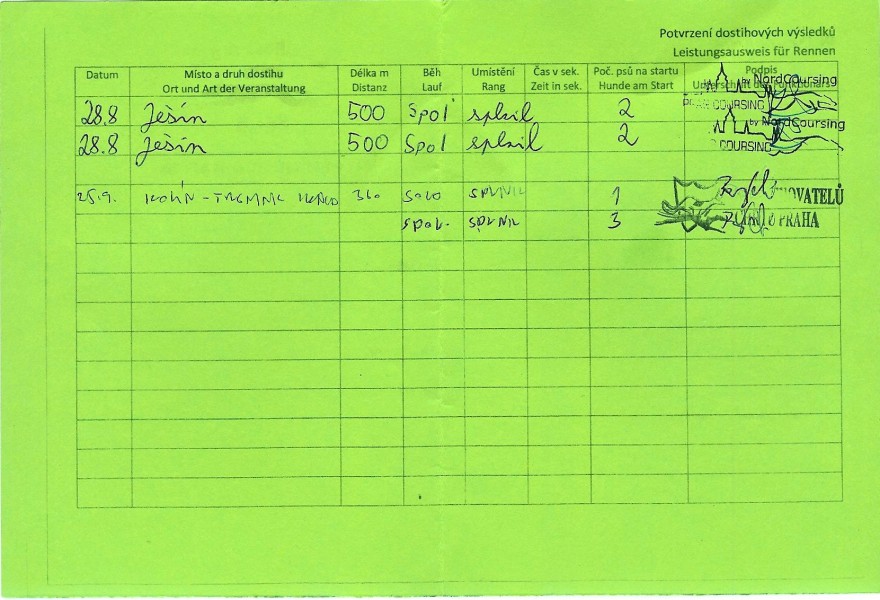 Potvrzení dostihových výsledků
Leistungsausweis für Rennen
Datum Místo a druh dostihu Délka m Běh Umístění Čas v sek. Poč. psů na startu Podpis
Ort und Art der Veranstaltung Distanz Lauf Rang Zeit in sek. Hunde am Start
by NordCoursing
28.8 Ješín 500 spol splnil 2
COURSING
by NordCoursing
28.8 Ješín 500 Spol splnil 2
COURSING
25.9. KOLÍN - 360 SOLO SPLNIL 1 OVATELŮ
SPOL. SPLNIL 3 PRAHA